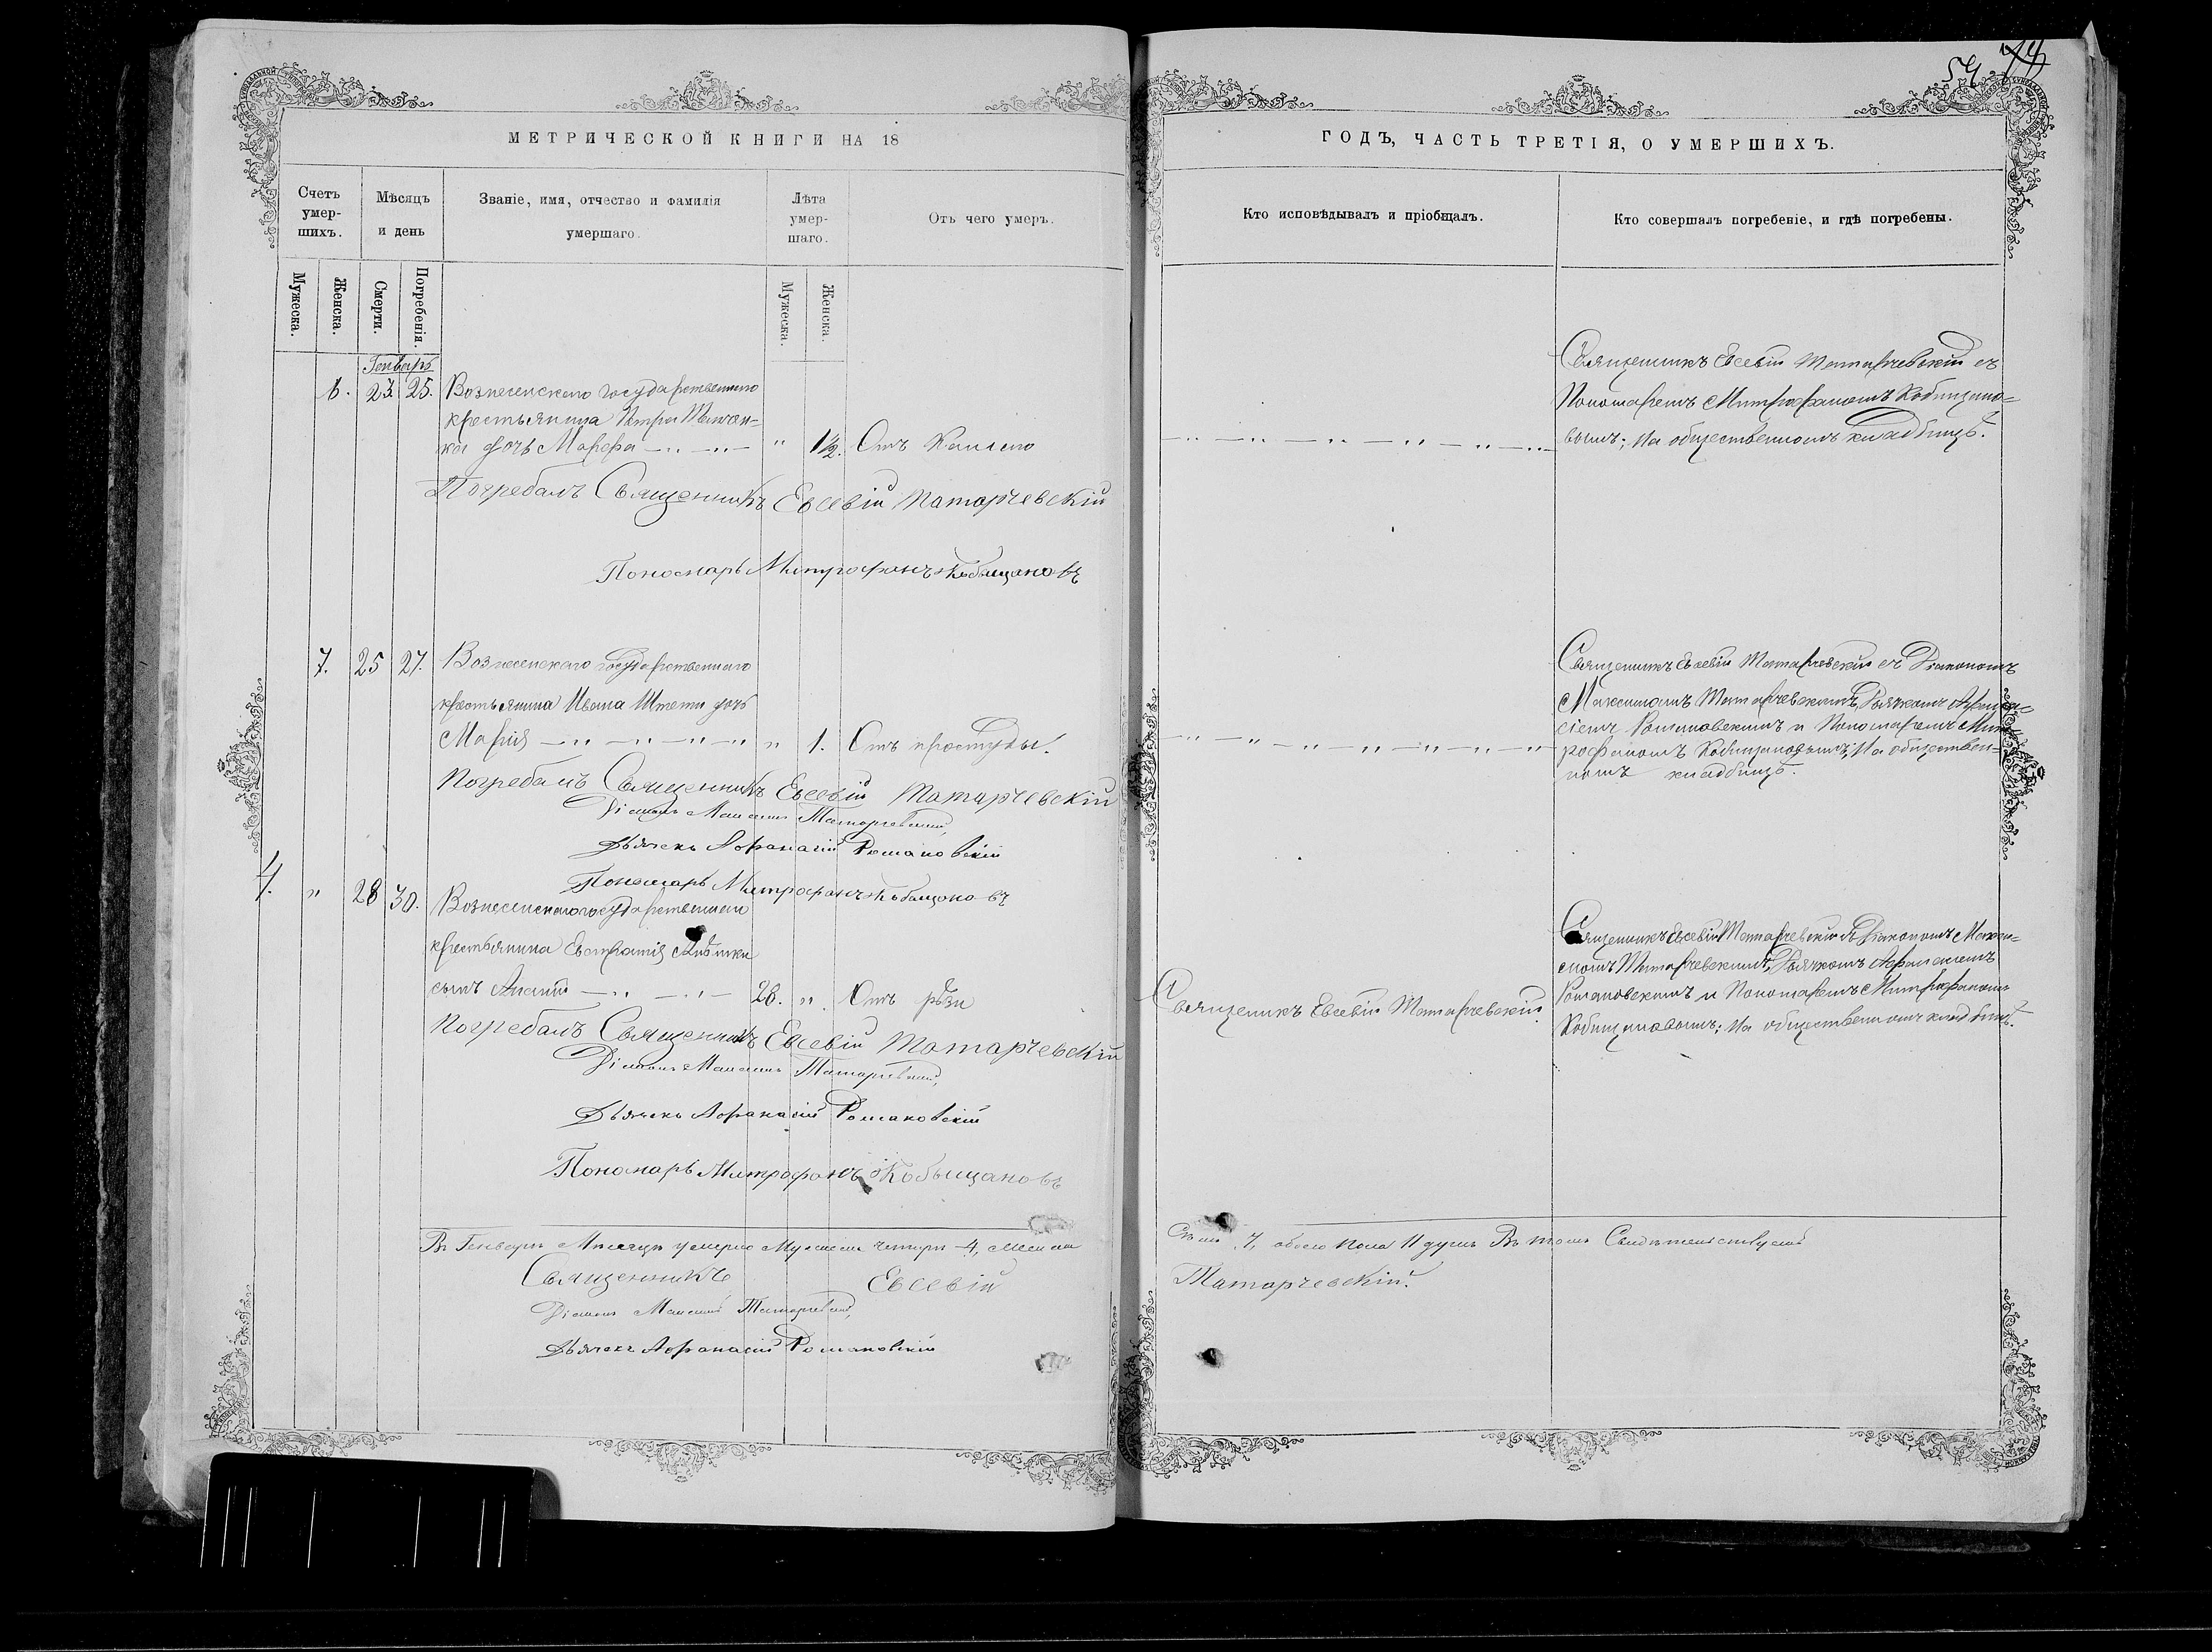 54
МЕТРИЧЕСКОЙ КНИГИ НА 18
ГОДЪ, ЧАСТЬ ТРЕТІЯ, О УМЕРШИХЪ.
Счетъ умер-
шихъ.
Мѣсяцъ
и день
Званіе, имя, отчество и фамилія
умершаго.
Лѣта
умер-
шаго.
Отъ чего умеръ.
Кто исповѣдывалъ и пріобщалъ.
Кто совершалъ погребеніе, и гдѣ погребены.
Мужеска.
Женска.
Смерти.
Погребенія.
Мужеска.
Женска.
Генварь
6. 23. 25. Вознесенскаго государственнаго
крестьянина Петра
ка дочь Марфа " 1½. Отъ Кашлю
Священникъ Евсевій Татарчевскій съ
Пономаремъ Митрофаномъ Кобищано-
вымъ; На общественномъ кладбищѣ.
Погребалъ Священникъ Евсевій Татарчевскій
Пономарь Митрофанъ Кобыщановъ
7. 25 27. Вознесенскаго государственнаго
крестьянина Ивана дочь
Марія " 1. Отъ простуды.
Священникъ Евсевій Татарчевскій съ Діакономъ
Максимомъ Татарчевскимъ, Дьячкомъ Афана-
сіемъ Романовскимъ и Пономаремъ Мит-
рофаномъ Кобищановымъ; На обществен-
номъ кладбищѣ.
Погребалъ Священникъ Евсевій Татарчевскій
Діаконъ Максимъ Татарчевскій,
Дьячекъ Афанасій Романовскій
Пономарь Митрофанъ Кобыщановъ
4. " 28 30. Вознесенскаго государственнаго
крестьянина Евстратія
сынъ 28. " Отъ рѣзи
Священикъ Евсевій Татарчевскій.
Священникъ Евсевій Татарчевскій съ Діакономъ Макси-
момъ Татарчевскимъ, Дьячкомъ Афанасіемъ
Романовскимъ и Пономаремъ Митрофаномъ
Кобищановымъ; На общественномъ кладбищѣ.
Погребалъ Священникъ Евсевій Татарчевскій
Діаконъ Максимъ Татарчевскій,
Дьячекъ Афанасій Романовскій
Пономарь Митрофанъ Кобыщановъ
Въ Генварѣ Мѣсяцѣ умерло Мужеска четыре 4, Женска
Семь 7, обоего пола 11 душъ Въ томъ Свидѣтельствуемъ
Священникъ Евсевій Татарчевскій.
Діаконъ Максимъ Татарчевскій,
Дьячекъ Афанасій Романовскій